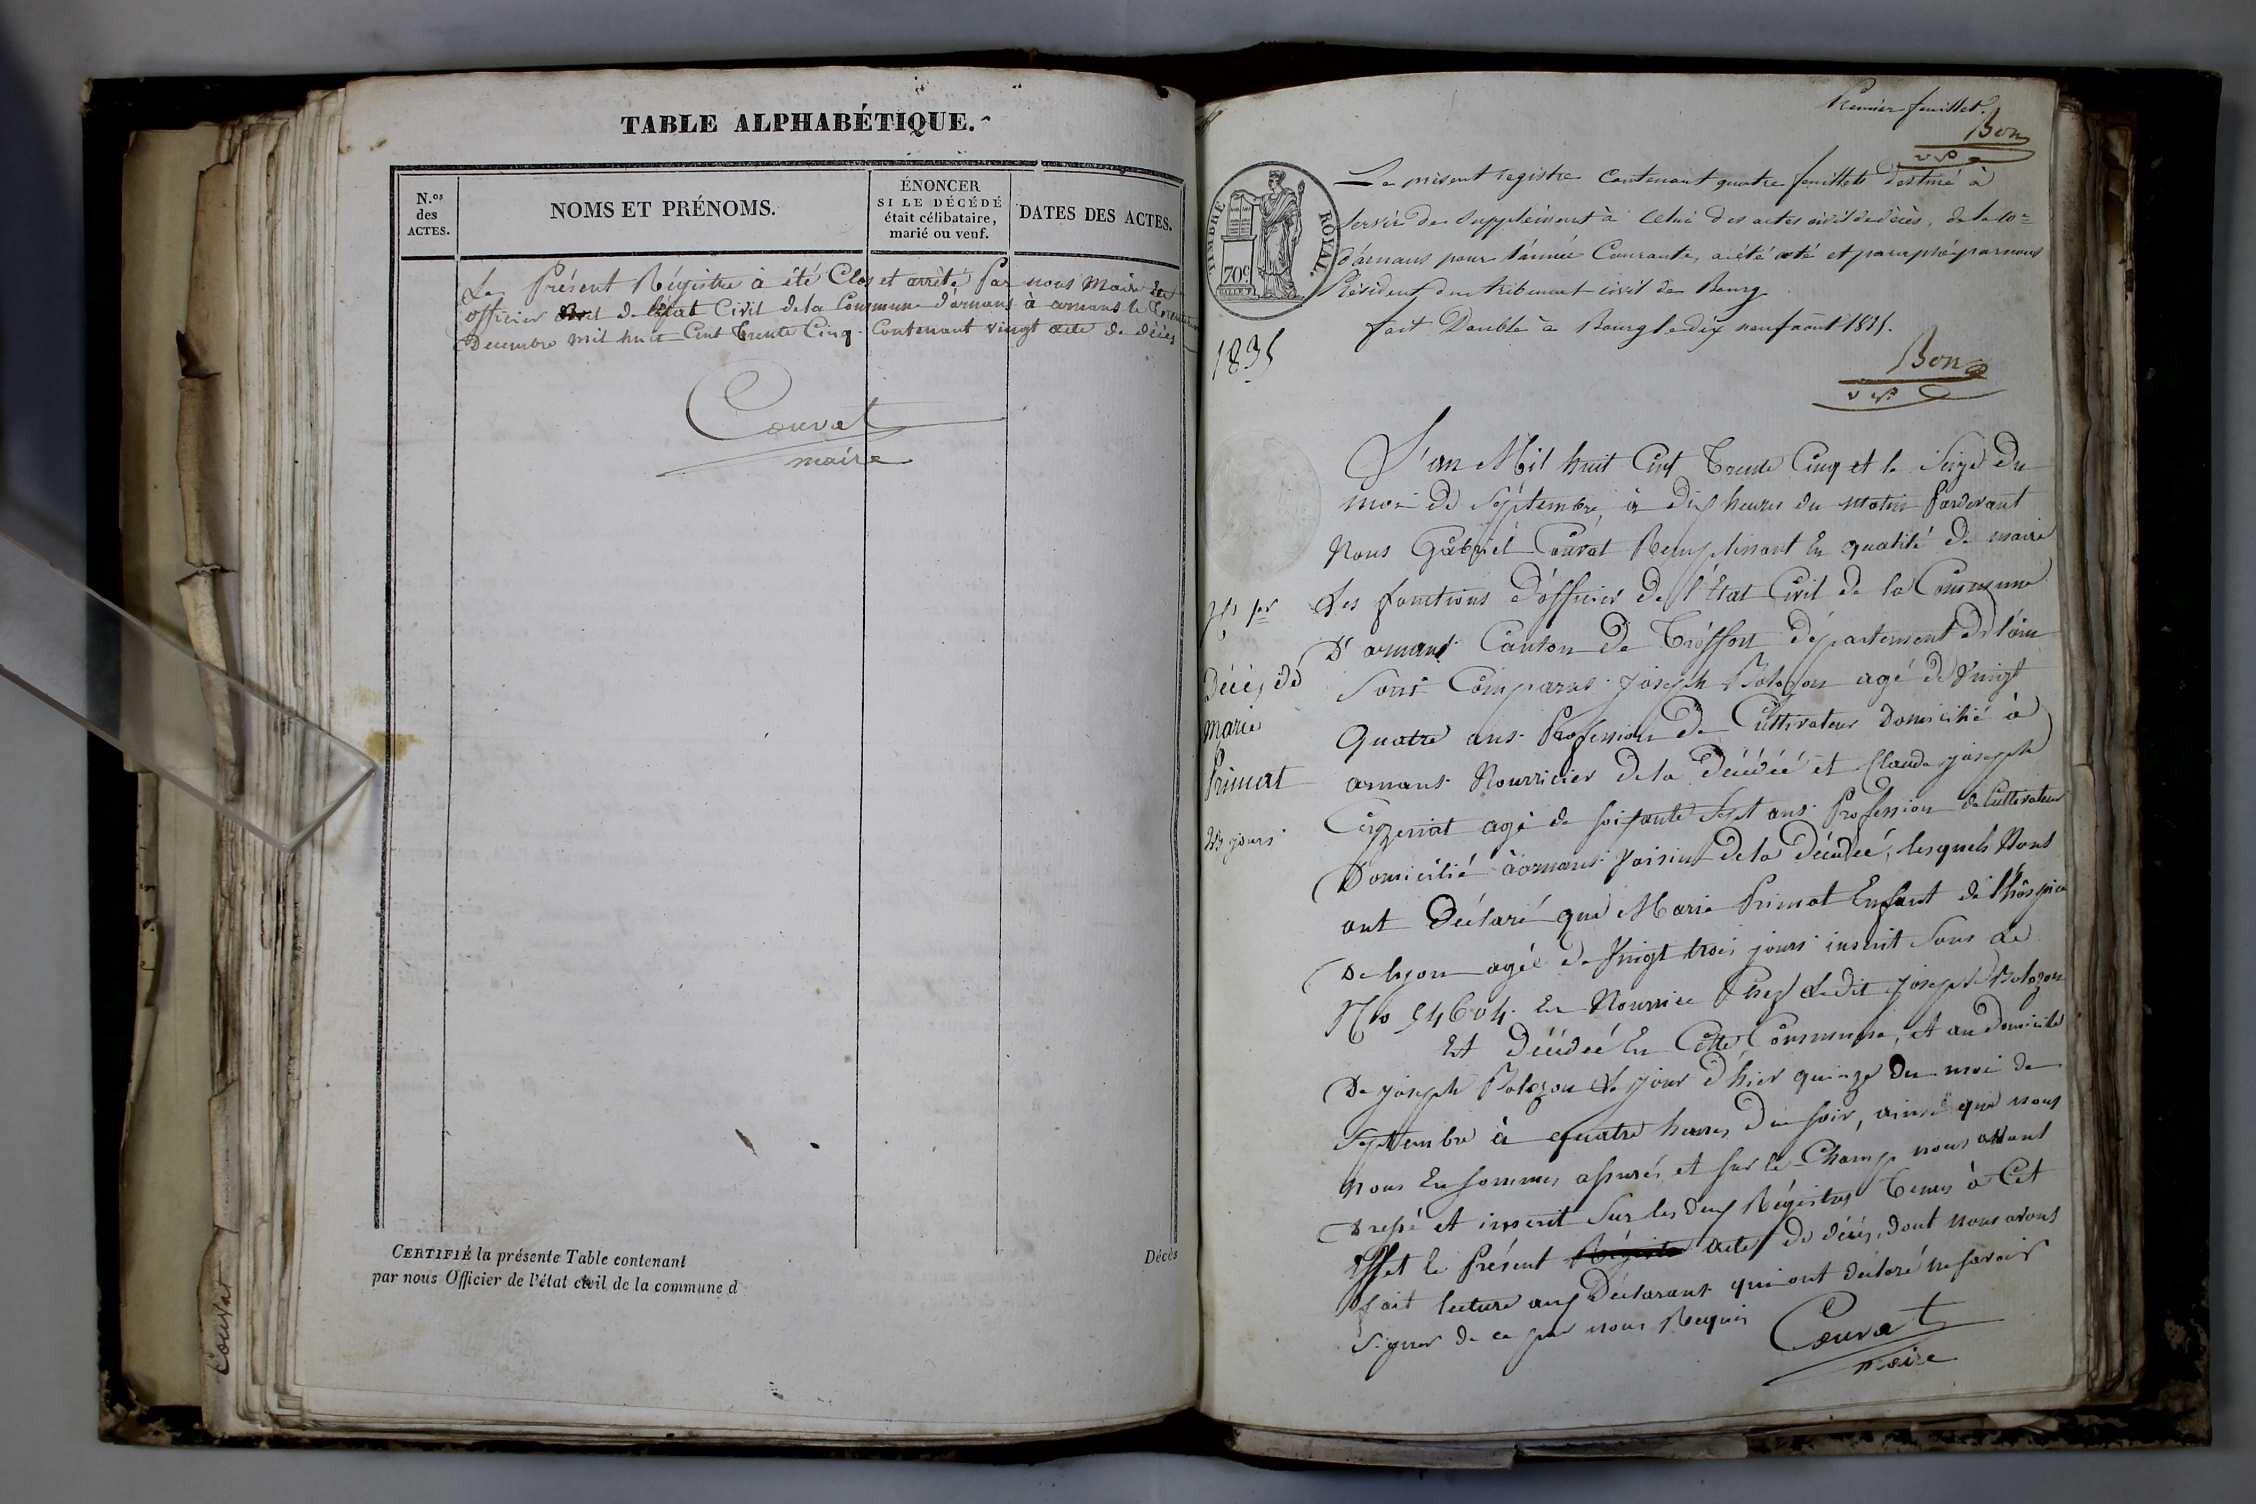 TABLE ALPHABÉTIQUE.
N.os
des
ACTES.
NOMS ET PRÉNOMS.
ÉNONCER
SI LE DÉCÉDÉ
était célibataire,
marié ou veuf.
DATES DES ACTES.
Le Présent Régistre à été Clos et arrêté Par nous Maire
officier de létat Civil de la Commune d'arnans à arnans le
Decembre mil huit Cent trente Cinq. Contenant vingt acte de décès
Couvat
maire
CERTIFIÉ la présente Table contenant
Décès
par nous Officier de l'état civil de la commune d
Couvat
Premier feuillet.
Bon
v p
Le présent registre Contenant quatre feuillets destiné à
servir de Supplément à Celui des actes civil de décès, de la co=
d'arnans pour l'année Courante, a été coté et paraphé par nous
Président du tribunal civil de Bourg
fait Double à Bourg le dix neuf août 1835.
TIMBRE ROYAL.
70c
1835
Bon
v p
L'an Mil huit Cent Trente Cinq et le Seize du
moi de Séptembre, à dix heures du matin Pardevant
Nous Gabriel Couvat Remplissant En qualité de maire
Les fonctions d'officier de l'État Civil de la Commune
D'arnans Canton de Tréffort département de l'ain
Sont Comparus Joseph Bolozon agé de Vingt
Quatre ans Profession de Cultivateur Domicilié à
arnans Nourricier de la Décédée et Claude joseph
agé de soixante Sept ans Profession de Cultivateur
Domicilié à arnans voisin de la Décédée, lesquels Nous
ont Déclaré que Marie Primat Enfant de l'hôspice
De lyon agée de Vingt trois jours inscrit Sous Le
No 54604. En Nourrice Chez Ledit joseph Bolozon
Est Décédée En Cette Commune, et au Domicile
De joseph Bolozon Le jour d'hier quinze du moi de
Septembre à quatre heures du soir, ainsi que nous
Nous En sommes assurés, et sur le Champ nous avons
Dressé et inscrit Sur les deux Régistres tenus à Cet
Effet le Présent acte de décès, dont nous avons
fait lecture aux Déclarants qui ont déclaré ne savoir
Signer de ce par nous Requis
Couvat
maire
Décès de
Marie
Primat
23 jours